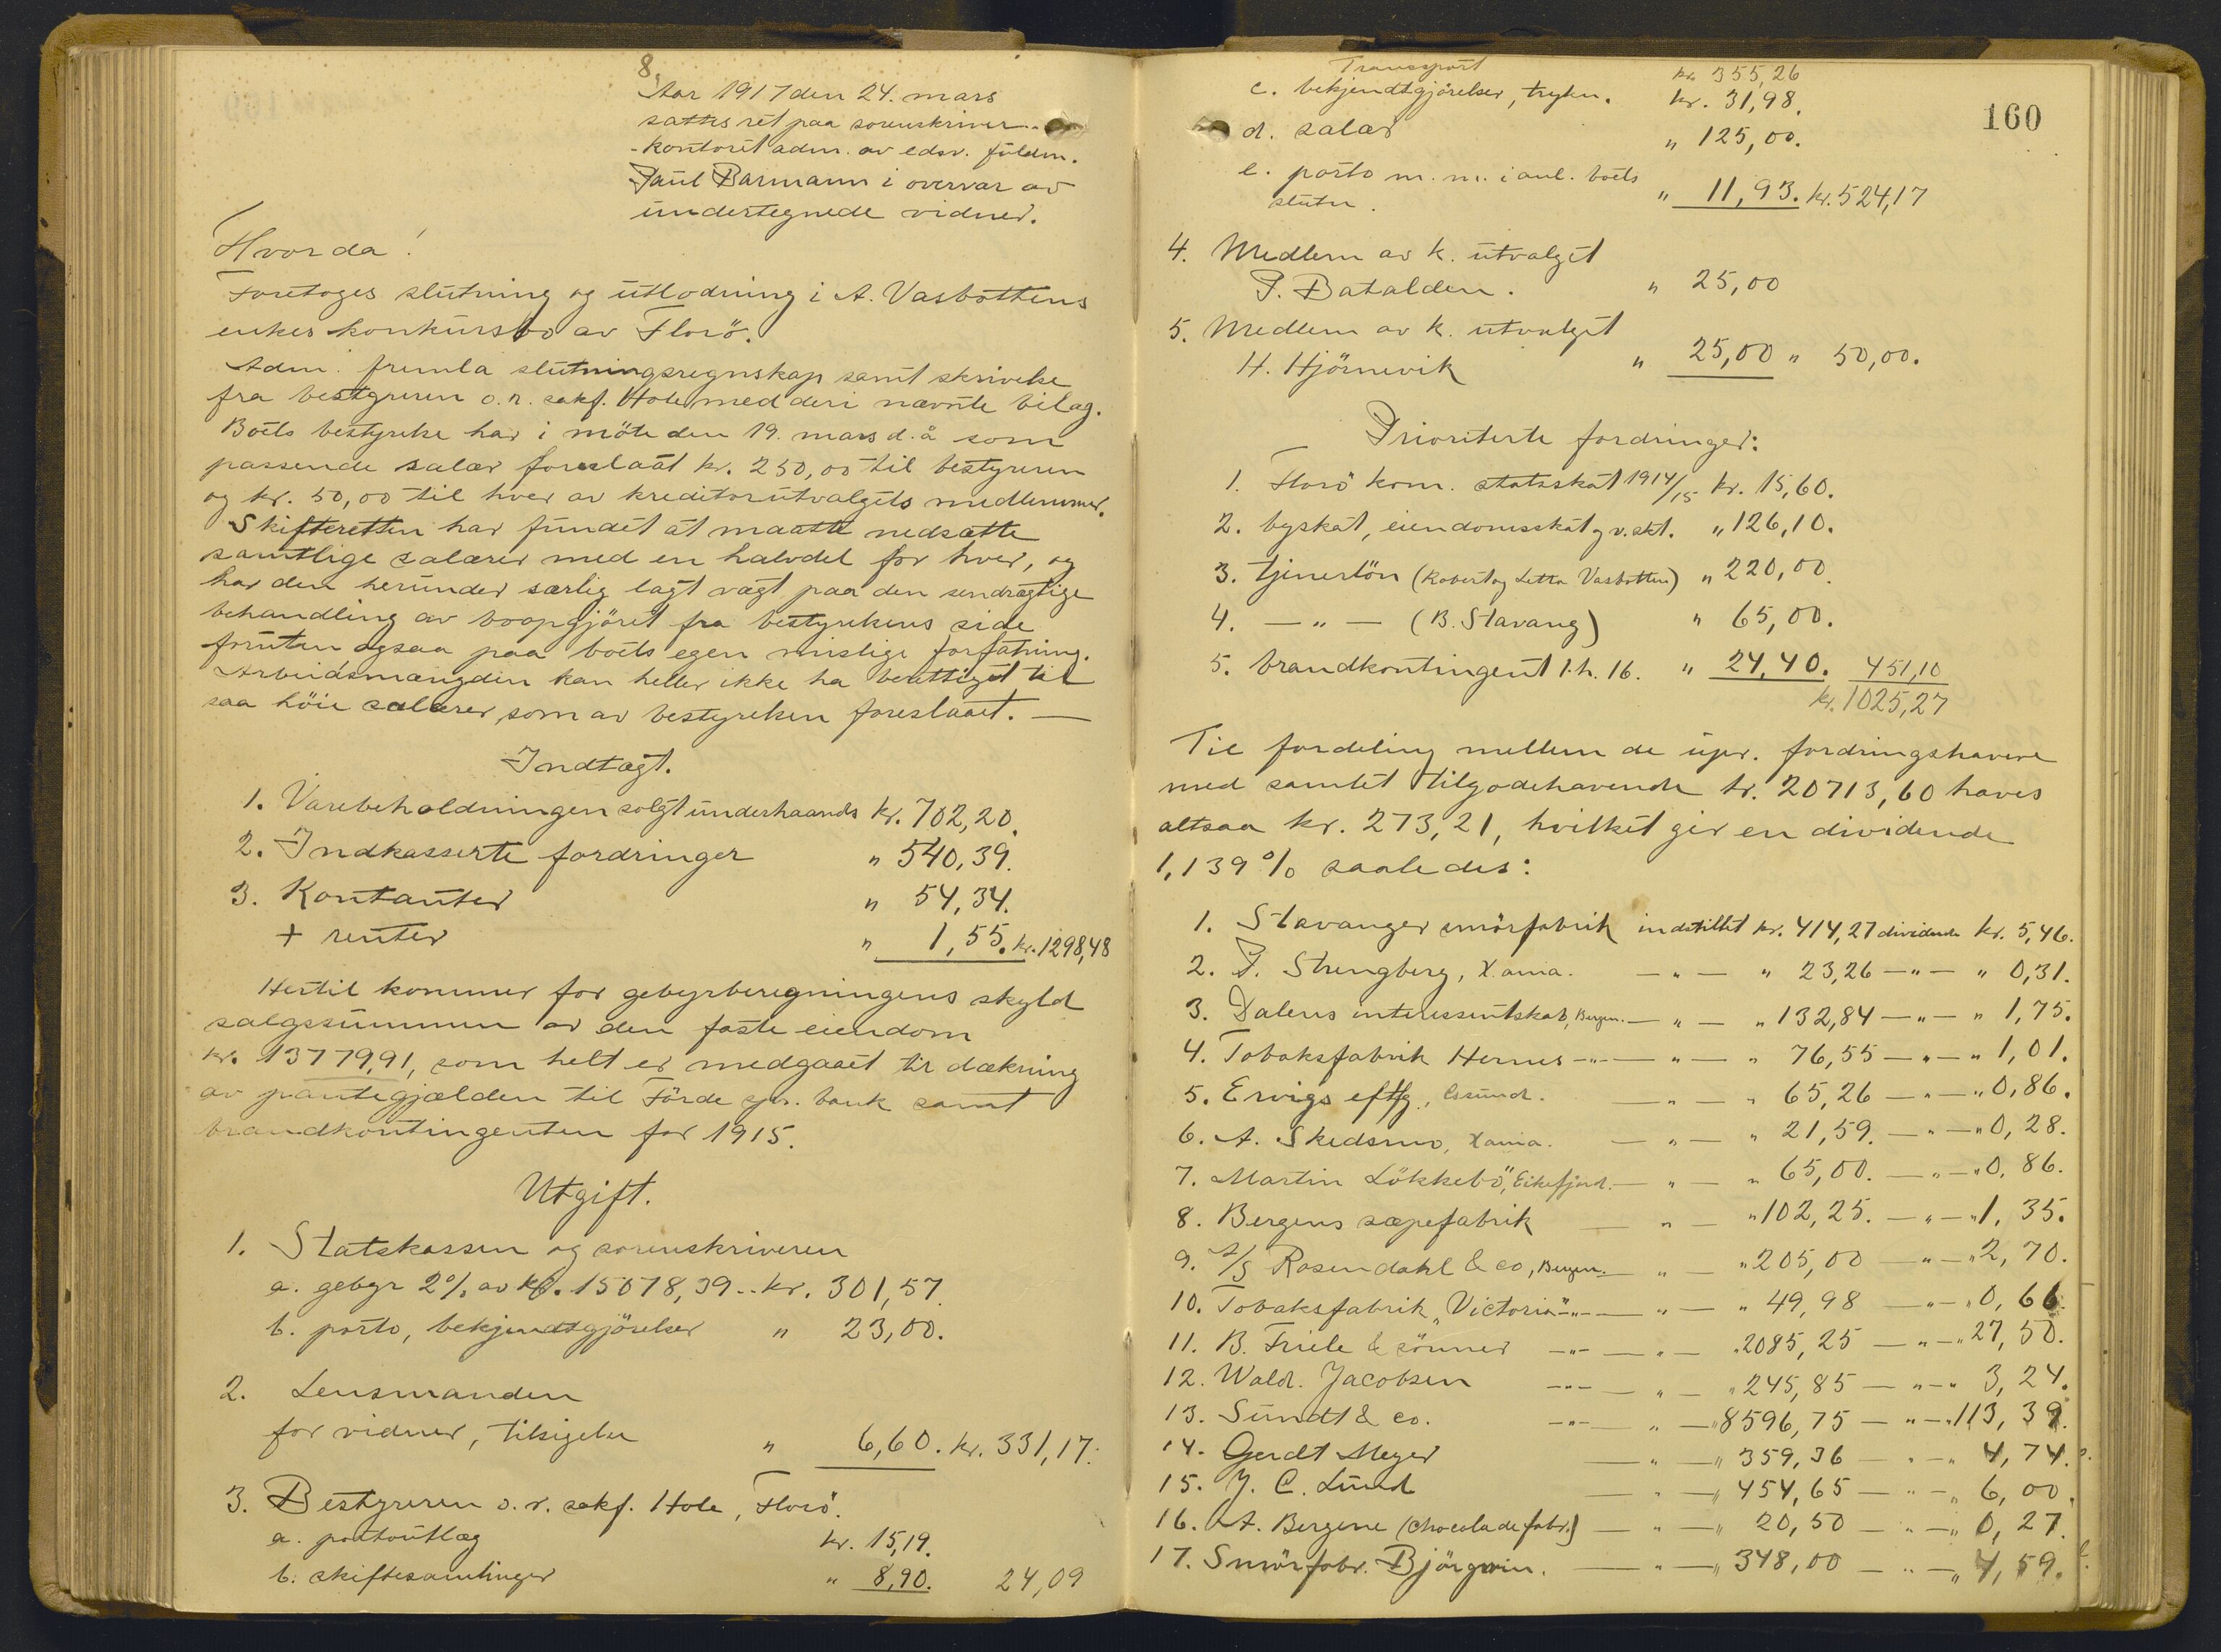 8.
Aar 1917 den 24. mars
sattes ret paa sorenskriver-
-kontoret adm. av edsv. fuldm.
Paul Barmann i overvær av
undertegnede vidner.
Hvorda!
Foretoges slutning og utlodning i A. Vasbottens
enkes konkursbo av Florö.
Adm. fremla slutningsregnskap samt skrivelse
fra bestyreren o.r. sakf. Hole med deri nævnte bilag.
Boets bestyrelse har i möte den 19. mars d. å som
passende salær foreslaat kr. 250,00 til bestyreren
og kr. 50,00 til hver av kreditorutvalgets medlemmer.
Skifteretten har fundet at maatte nedsætte
samtlige salærer med en halvdel for hver, og
har den herunder særlig lagt vægt paa den sendrægtige
behandling av boopgjöret fra bestyrelsens side
foruten ogsaa paa boets egen mislige forfatning.
Arbeidsmængden kan heller ikke ha berettiget til
saa höie salærer som av bestyrelsen foreslaaet. —
Indtægt.
1. Varebeholdningen solgt underhaands kr. 702,20.
2. Indkasserte fordringer " 540,39.
3. Kontanter " 54,34.
+ renter " 1,55. kr. 1298,48
Hertil kommer for gebyrberegningens skyld
salgssummen av den faste eiendom
kr. 13779,91, som helt er medgaaet til dækning
av pantegjælden til Förde spr. bank samt
brandkontingenten for 1915.
Utgift.
1. Statskassen og sorenskriveren
a. gebyr 2% av kr. 15078,39.. kr. 301,57.
b. porto, bekjendtgjörelser " 23,00.
2. Lensmanden
for vidner, tilsigelse " 6,60. kr. 331,17.
3. Bestyreren o.r. sakf. Hole, Florö.
a. portoutlæg kr. 15,19.
b. skiftesamlinger " 8,90. 24,09
Transport kr. 355,26
160
c. bekjendtgjörelser, trykn. kr. 31,98.
d. salær " 125,00.
e. porto m. m. i anl. boets
slutn. " 11,93. kr. 524,17
4. Medlem av k. utvalget
P. Batalden. " 25,00
5. Medlem av k. utvalget
H. Hjörnevik " 25,00 " 50,00.
Prioriterte fordringer:
1. Florö kom. statsskat 1914/15 kr. 15,60.
2. byskat, eiendomsskat og v.skt. " 126,10.
3. tjenerlön (Robert og Letta Vasbotten) " 220,00.
4. — " — (B. Stavang) " 65,00.
5. brandkontingent 1. h. 16. " 24,40. 451,10
kr. 1025,27
Til fordeling mellem de upr. fordringshavere
med samlet tilgodehavende kr. 20713,60 haves
altsaa kr. 273,21, hvilket gir en dividende
1,139 % saaledes:
1. Stavanger smörfabrik indstillet kr. 414,27 dividende kr. 5,46.
2. J. Strengberg, Xania. — " — " 23,26 — " — " 0,31.
3. Dalens interessentskab, Bergen. — " — " 132,84 — " — " 1,75.
4. Tobaksfabrik Hermes — " — — " — " 76,55 — " — " 1,01.
5. Ervigs eftfg., — " — " 65,26 — " — " 0,86.
6. A. Skedsmo, Xania. — " — " 21,59. — " — " 0,28.
7. Martin Lökkebö, Eikefjord. — " — " 65,00. — " — " 0,86.
8. Bergens sæpefabrik — " — " 102,25. — " — " 1,35.
9. A/S Rosendahl & co, Bergen. — " — " 205,00 — " — " 2,70.
10. Tobaksfabrik „Victoria" — " — — " — " 49,98 — " — " 0,66.
11. B. Friele & sönner — " — — " — " 2085,25 — " — " 27,50.
12. Wald. Jacobsen — " — — " — " 245,85 — " — " 3,24.
13. Sundt & co. — " — — " — " 8596,75 — " — " 113,39.
14. Gerdt Meyer — " — " 359,36 — " — " 4,74.
15. J. C. Lund — " — " 454,65 — " — " 6,00.
16. A. Bergene (chocoladefabr.) — " — " 20,50 — " — " 0,27.
17. Smörfabr. Björgvin. — " — " 348,00 — " — " 4,59.